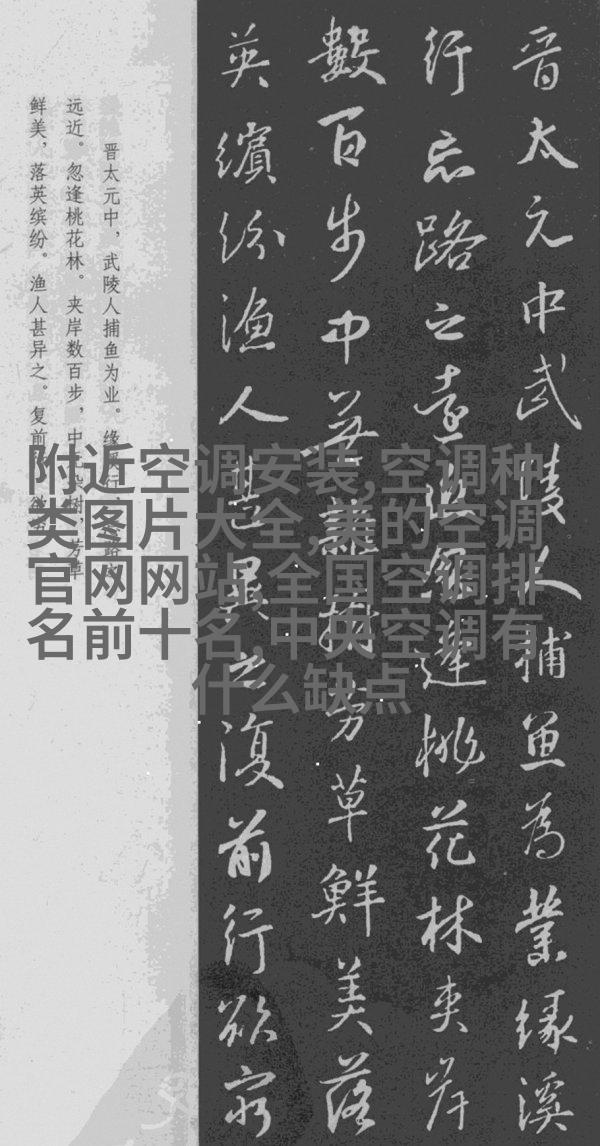 晋太元中武陵人捕魚為業緣溪
行忘路之遠近忽逢桃花林夾岸
數百步中無雜樹芳草鮮美落
英繽紛漁人甚異之復前行欲窮
晋太元中，武陵人捕鱼为业。缘溪行，忘路之
远近。忽逢桃花林。夹岸数百步，中无杂树，芳草
鲜美，落英缤纷。渔人甚异之。复前
附近空调安装,空调种
类图片大全,美的空调
官网网站,全国空调排
名前十名,中央空调有
什么缺点